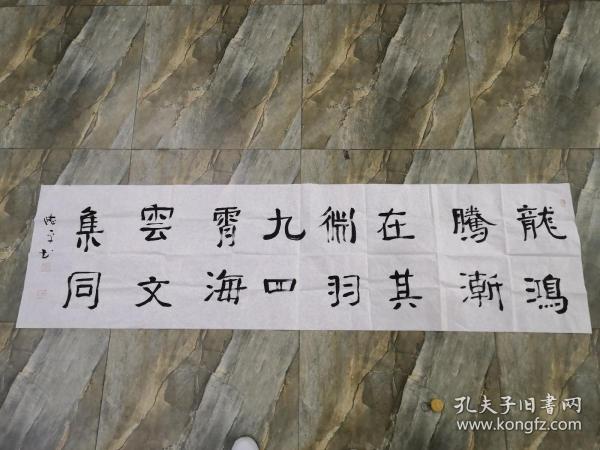 龍騰在淵九霄雲集
鴻漸其羽四海文同
孔夫子旧書网
www.kongfz.com